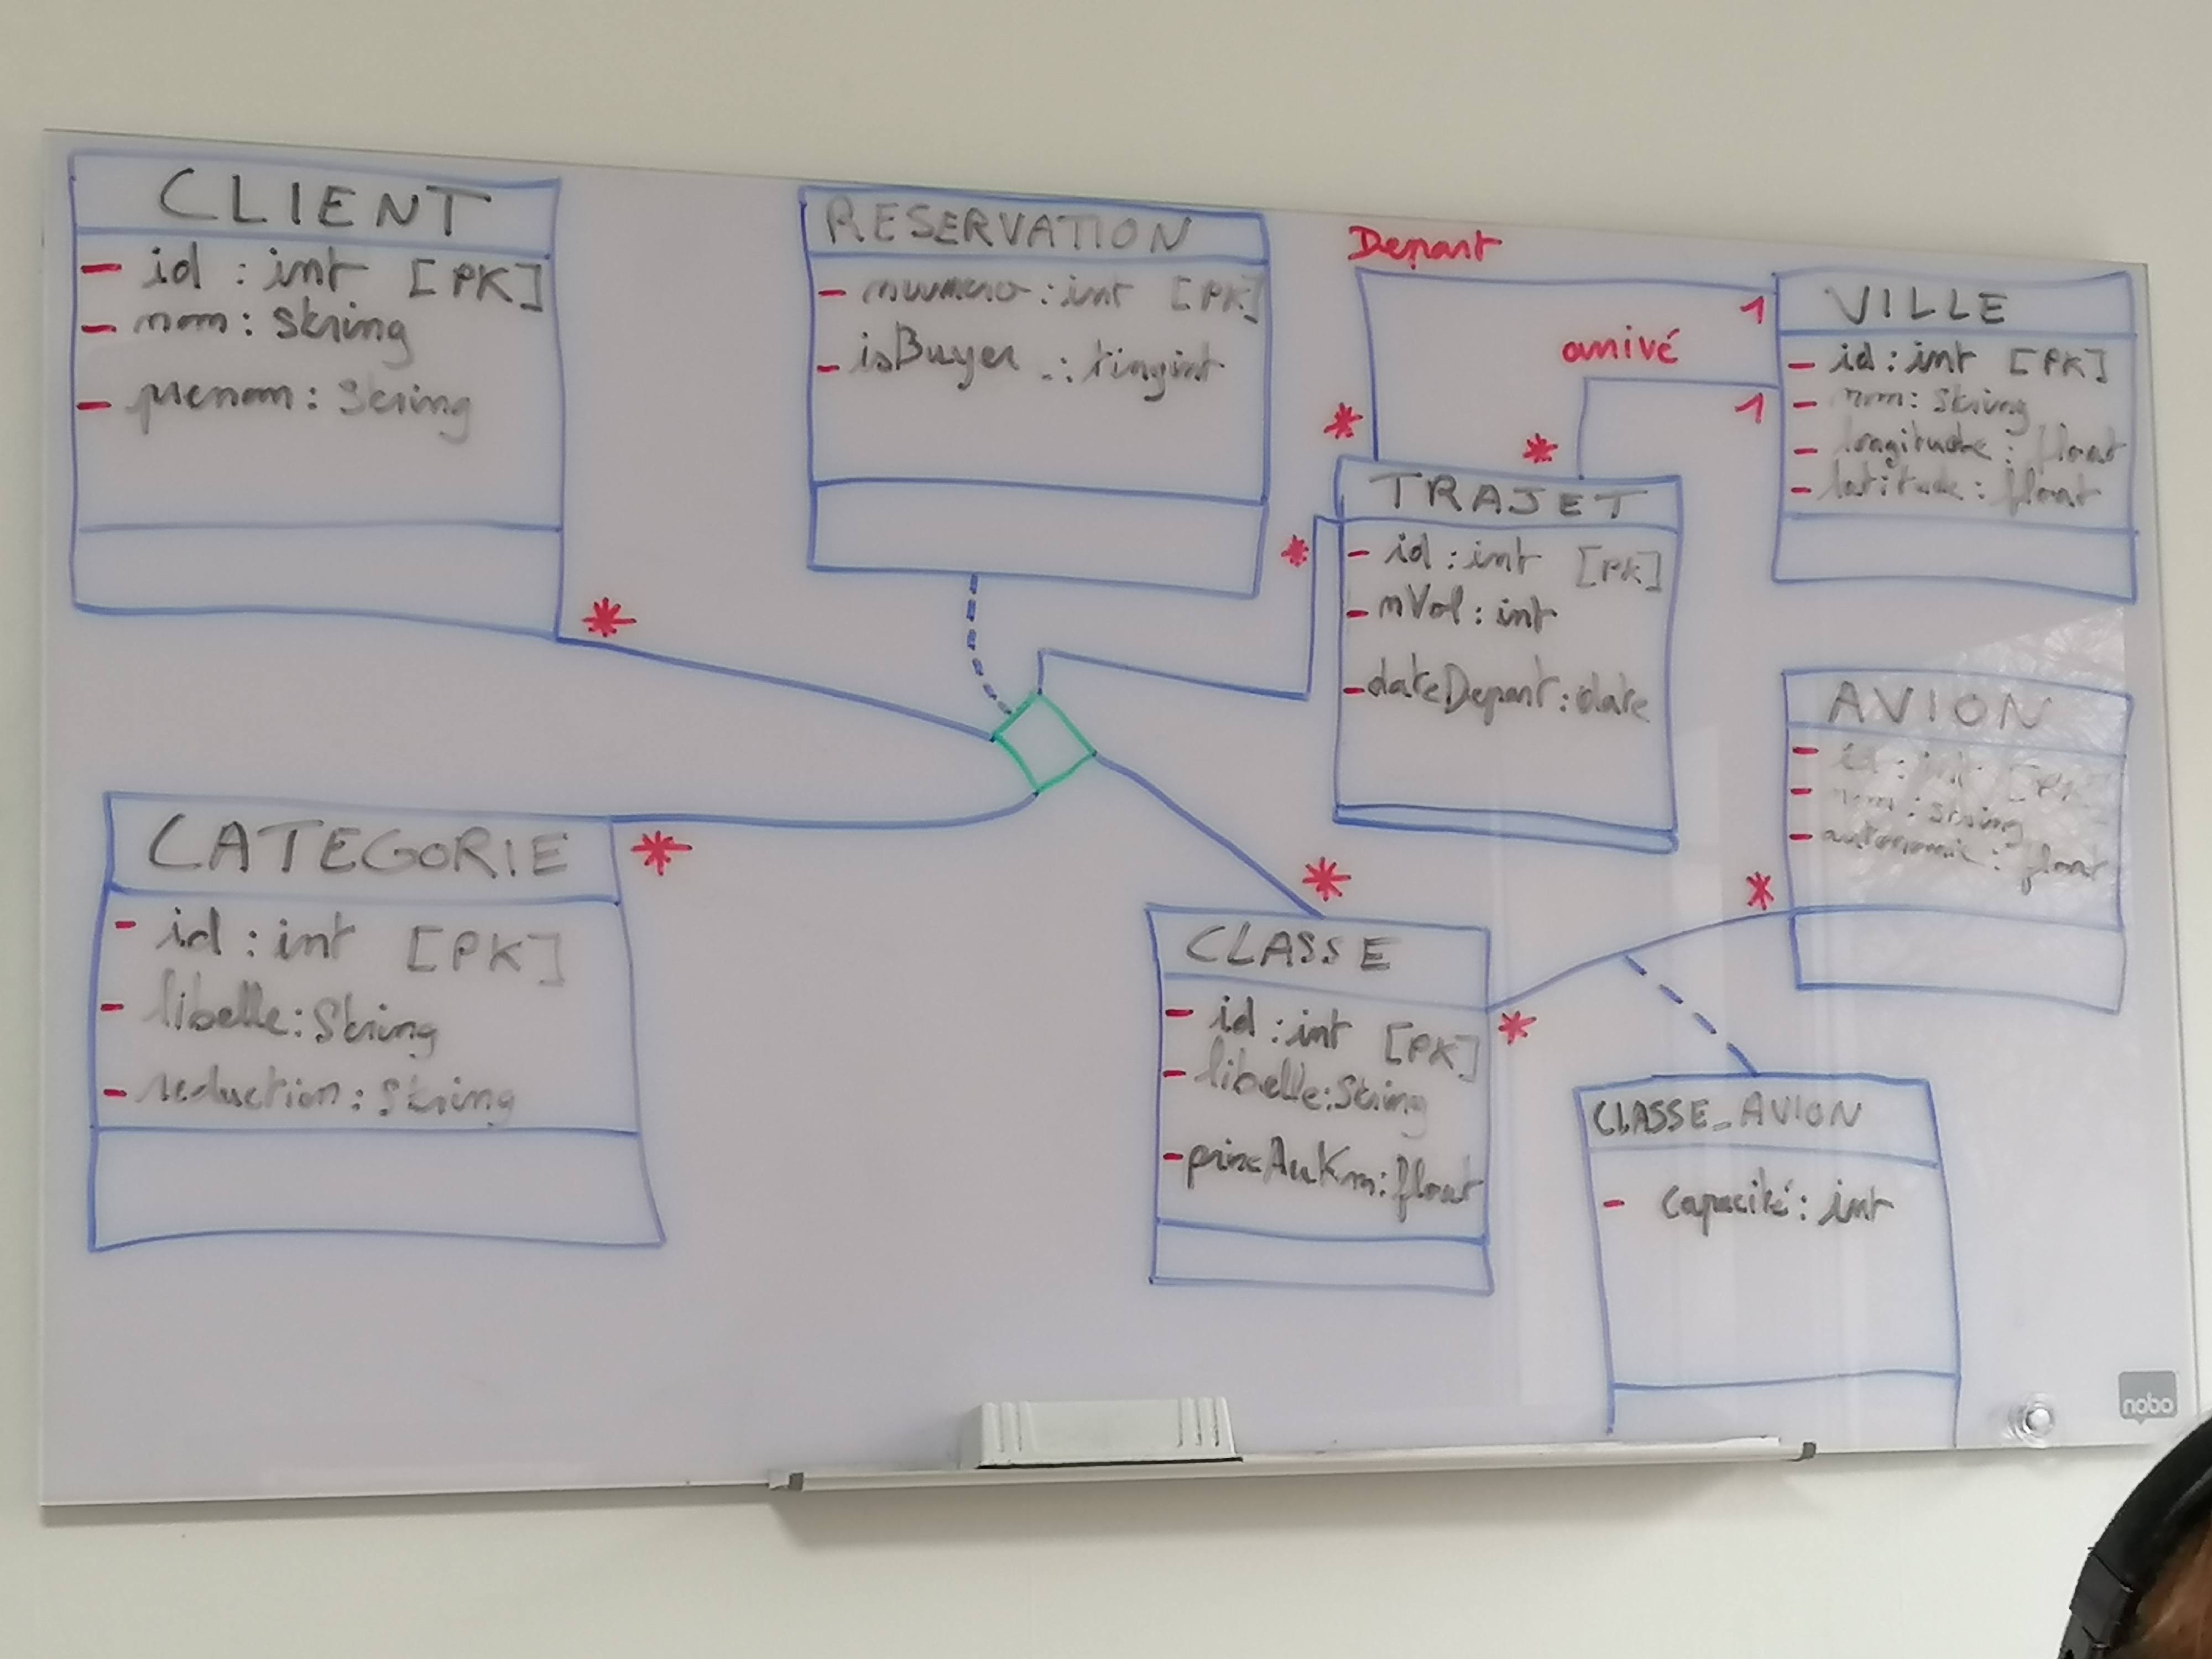 CLIENT
- id : int [PK]
- nom : String
- prenom : String
RESERVATION
- numero : int [PK]
- isBuyer : tinyint
Depart
1
arrivé
1
*
*
VILLE
- id : int [PK]
- nom : String
- longitude : float
- latitude : float
*
TRAJET
- id : int [PK]
- nVol : int
- dateDepart : date
*
AVION
- id : int [PK]
- nom : String
- autonomie : float
*
CATEGORIE
- id : int [PK]
- libelle : String
- reduction : String
*
*
*
CLASSE
- id : int [PK]
- libelle : String
- prixAuKm : float
*
CLASSE_AVION
- capacité : int
nobo